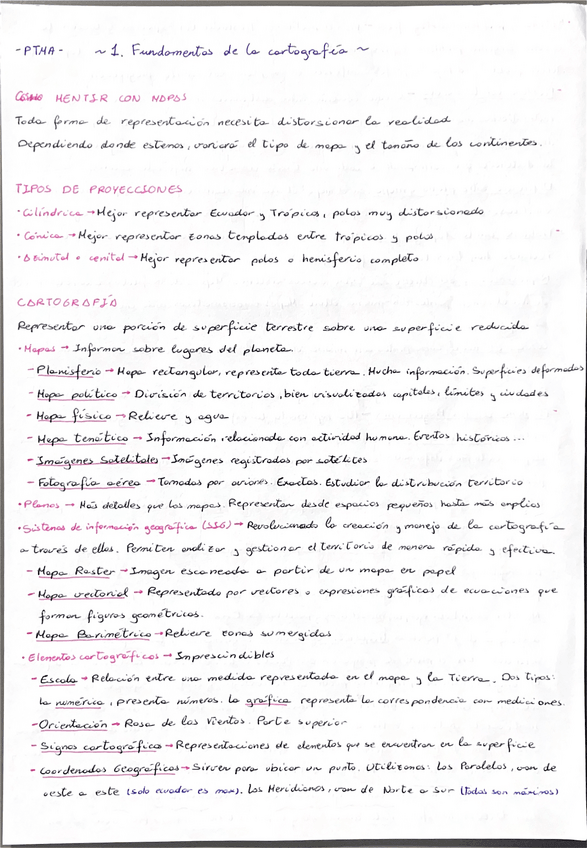 -PTMA- ~ 1. Fundamentos de la cartografía ~
CÓMO MENTIR CON MAPAS
Toda forma de representación necesita distorsionar la realidad
Dependiendo donde estemos, variará el tipo de mapa y el tamaño de los continentes.
TIPOS DE PROYECCIONES
· Cilíndrica → Mejor representar Ecuador y Trópicos, polos muy distorsionado
· Cónica → Mejor representar zonas templadas entre trópicos y polos
· Azimutal o cenital → Mejor representar polos o hemisferio completo
CARTOGRAFÍA
Representar una porción de superficie terrestre sobre una superficie reducida
· Mapas → Informan sobre lugares del planeta
- Planisferio → Mapa rectangular, representa toda tierra. Mucha información. Superficies deformadas
- Mapa político → División de territorios, bien visualizados capitales, límites y ciudades
- Mapa físico → Relieve y agua
- Mapa temático → Información relacionada con actividad humana. Eventos históricos...
- Imágenes Satelitales → Imágenes registradas por satélites
- Fotografía aérea → Tomadas por aviones. Exactas. Estudiar la distribución territorio
· Planos → Más detalles que los mapas. Representan desde espacios pequeños hasta más amplios
· Sistemas de información geográfica (SIG) → Revolucionado la creación y manejo de la cartografía
a través de ellas. Permiten analizar y gestionar el territorio de manera rápida y efectiva.
- Mapa Raster → Imagen escaneada a partir de un mapa en papel
- Mapa vectorial → Representado por vectores o expresiones gráficas de ecuaciones que
forman figuras geométricas.
- Mapa Barimétrico → Relieve zonas sumergidas
· Elementos cartográficos → Imprescindibles
- Escala → Relación entre una medida representada en el mapa y la Tierra. Dos tipos:
la numérica, presenta números. la gráfica representa la correspondencia con mediciones.
- Orientación → Rosa de los Vientos. Parte superior
- Signos cartográficos → Representaciones de elementos que se encuentran en la superficie
- Coordenadas Geográficas → Sirven para ubicar un punto. Utilizamos: Los Paralelos, van de
oeste a este (solo ecuador es max). Los Meridianos, van de Norte a Sur (Todos son máximos)